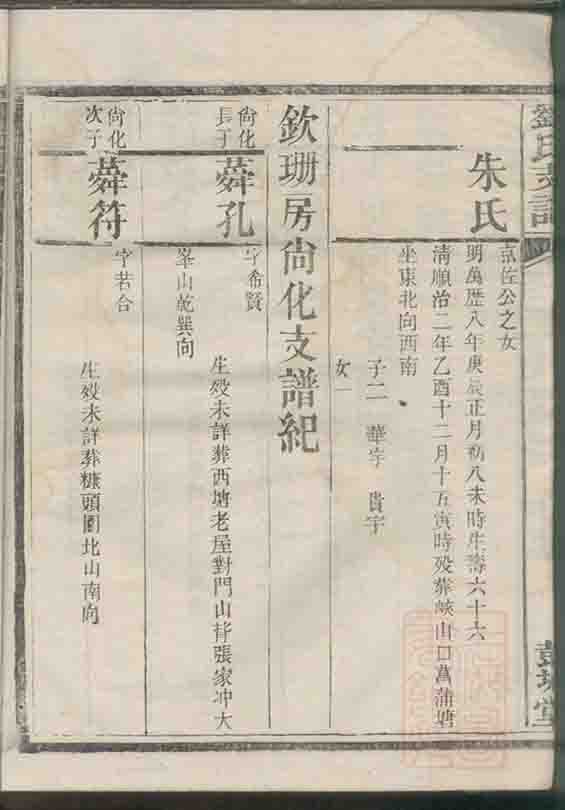 劉氏支譜
彭城堂
朱氏
佐公之女
明萬歷八年庚辰正月初八未時生壽六十六
清順治二年乙酉十二月十五寅時歿葬峽山口菖蒲塘
坐東北向西南
子二 華宇 貴宇
女一
欽珊房尙化支譜紀
尙化
長子
蕣孔
字希賢
生歿未詳葬西塘老屋對門山背張家冲大
峯山乾巽向
尙化
次子
蕣符
字若合
生歿未詳葬槺頭園北山南向